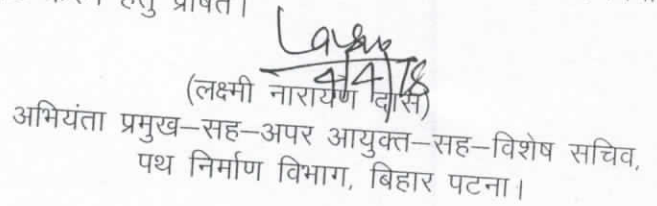 हेतु प्रेषित।
4/4/18
(लक्ष्मी नारायण दास)
अभियंता प्रमुख–सह–अपर आयुक्त–सह–विशेष सचिव,
पथ निर्माण विभाग, बिहार पटना।